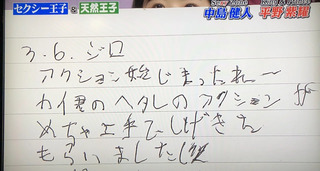 セクシー王子&天然王子
Sexy Zone
中島健人
King & Prince
平野紫耀
3.6. ジロ
アクション始じまったね〜
カイ君のヘタレのアクション
めちゃ上手でしげきを
もらいました